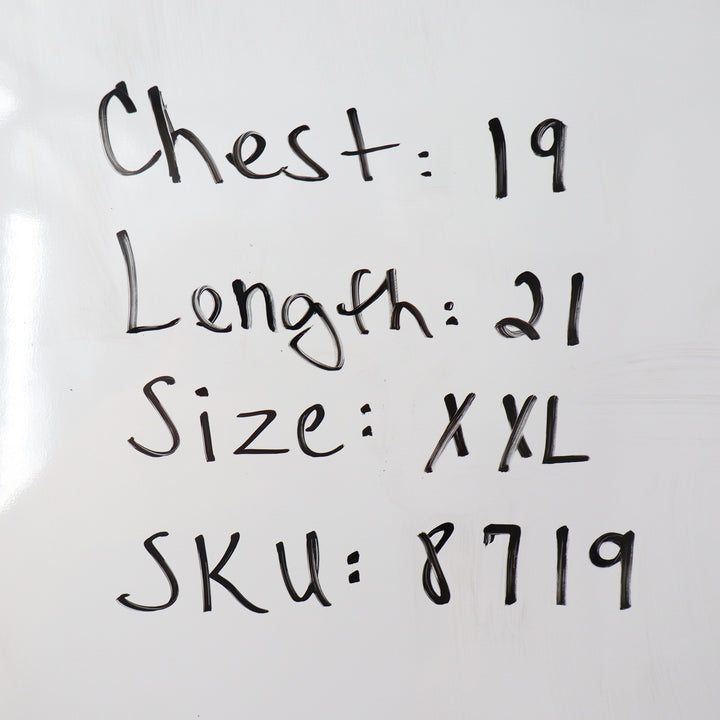 Chest: 19
Length: 21
Size: XXL
SKU: 8719